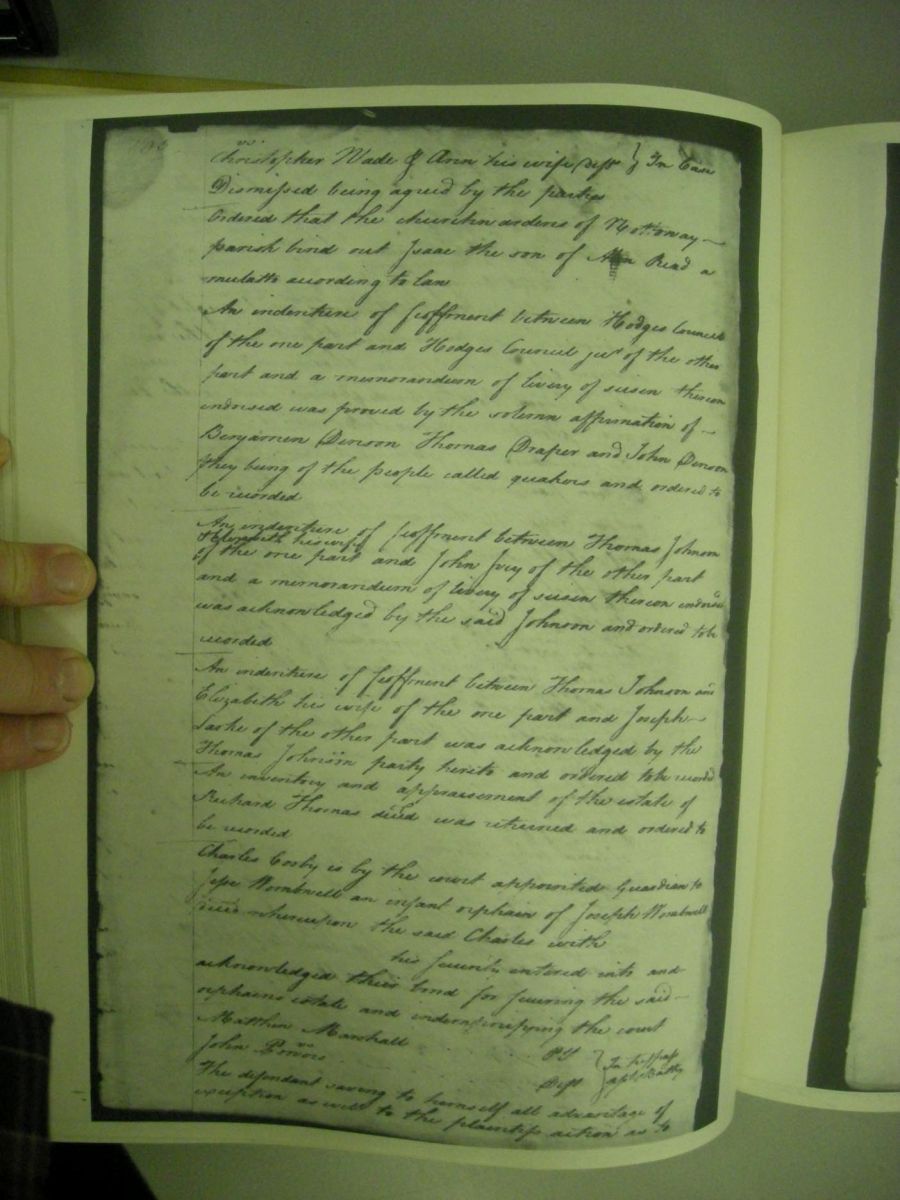 vs
Christopher Wade & Ann his wife Deft } In Case
Dismissed being agreed by the parties
Ordered that the churchwardens of Nottoway
parish bind out Isaac the son of Ann Read a
mulatto according to law
An indenture of feoffment between Hodges Council
of the one part and Hodges Council junr of the other
part and a memorandum of livery of seisen thereon
indorised was proved by the solemn affirmation of
Benjamin Denson Thomas Draper and John Denson
they being of the people called quakers and ordered to
be recorded
An indenture of feoffment between Thomas Johnson
& Elizabeth his wife
of the one part and John Ivey of the other part
and a memorandum of livery of seisen thereon indorsed
was acknowledged by the said Johnson and ordered to be
recorded
An indenture of feoffment between Thomas Johnson and
Elizabeth his wife of the one part and Joseph
of the other part was acknowledged by the
Thomas Johnson party hereto and ordered to be recorded
An inventory and appraisement of the estate of
Richard Thomas deced was returned and ordered to
be recorded
Charles Cosby is by the court appointed Guardian to
Jesse Wombwell an infant orphain of Joseph Wombwell
deced whereupon the said Charles with
his security entered into and
acknowledged their bond for securing the said
orphains estate and indemnifying the court
Matthew Marshall Plt
vs } In trespass
John Powers Deft aslt & Batty
The defendant saving to himself all advantage of
exception as well to the plaintifs action as to